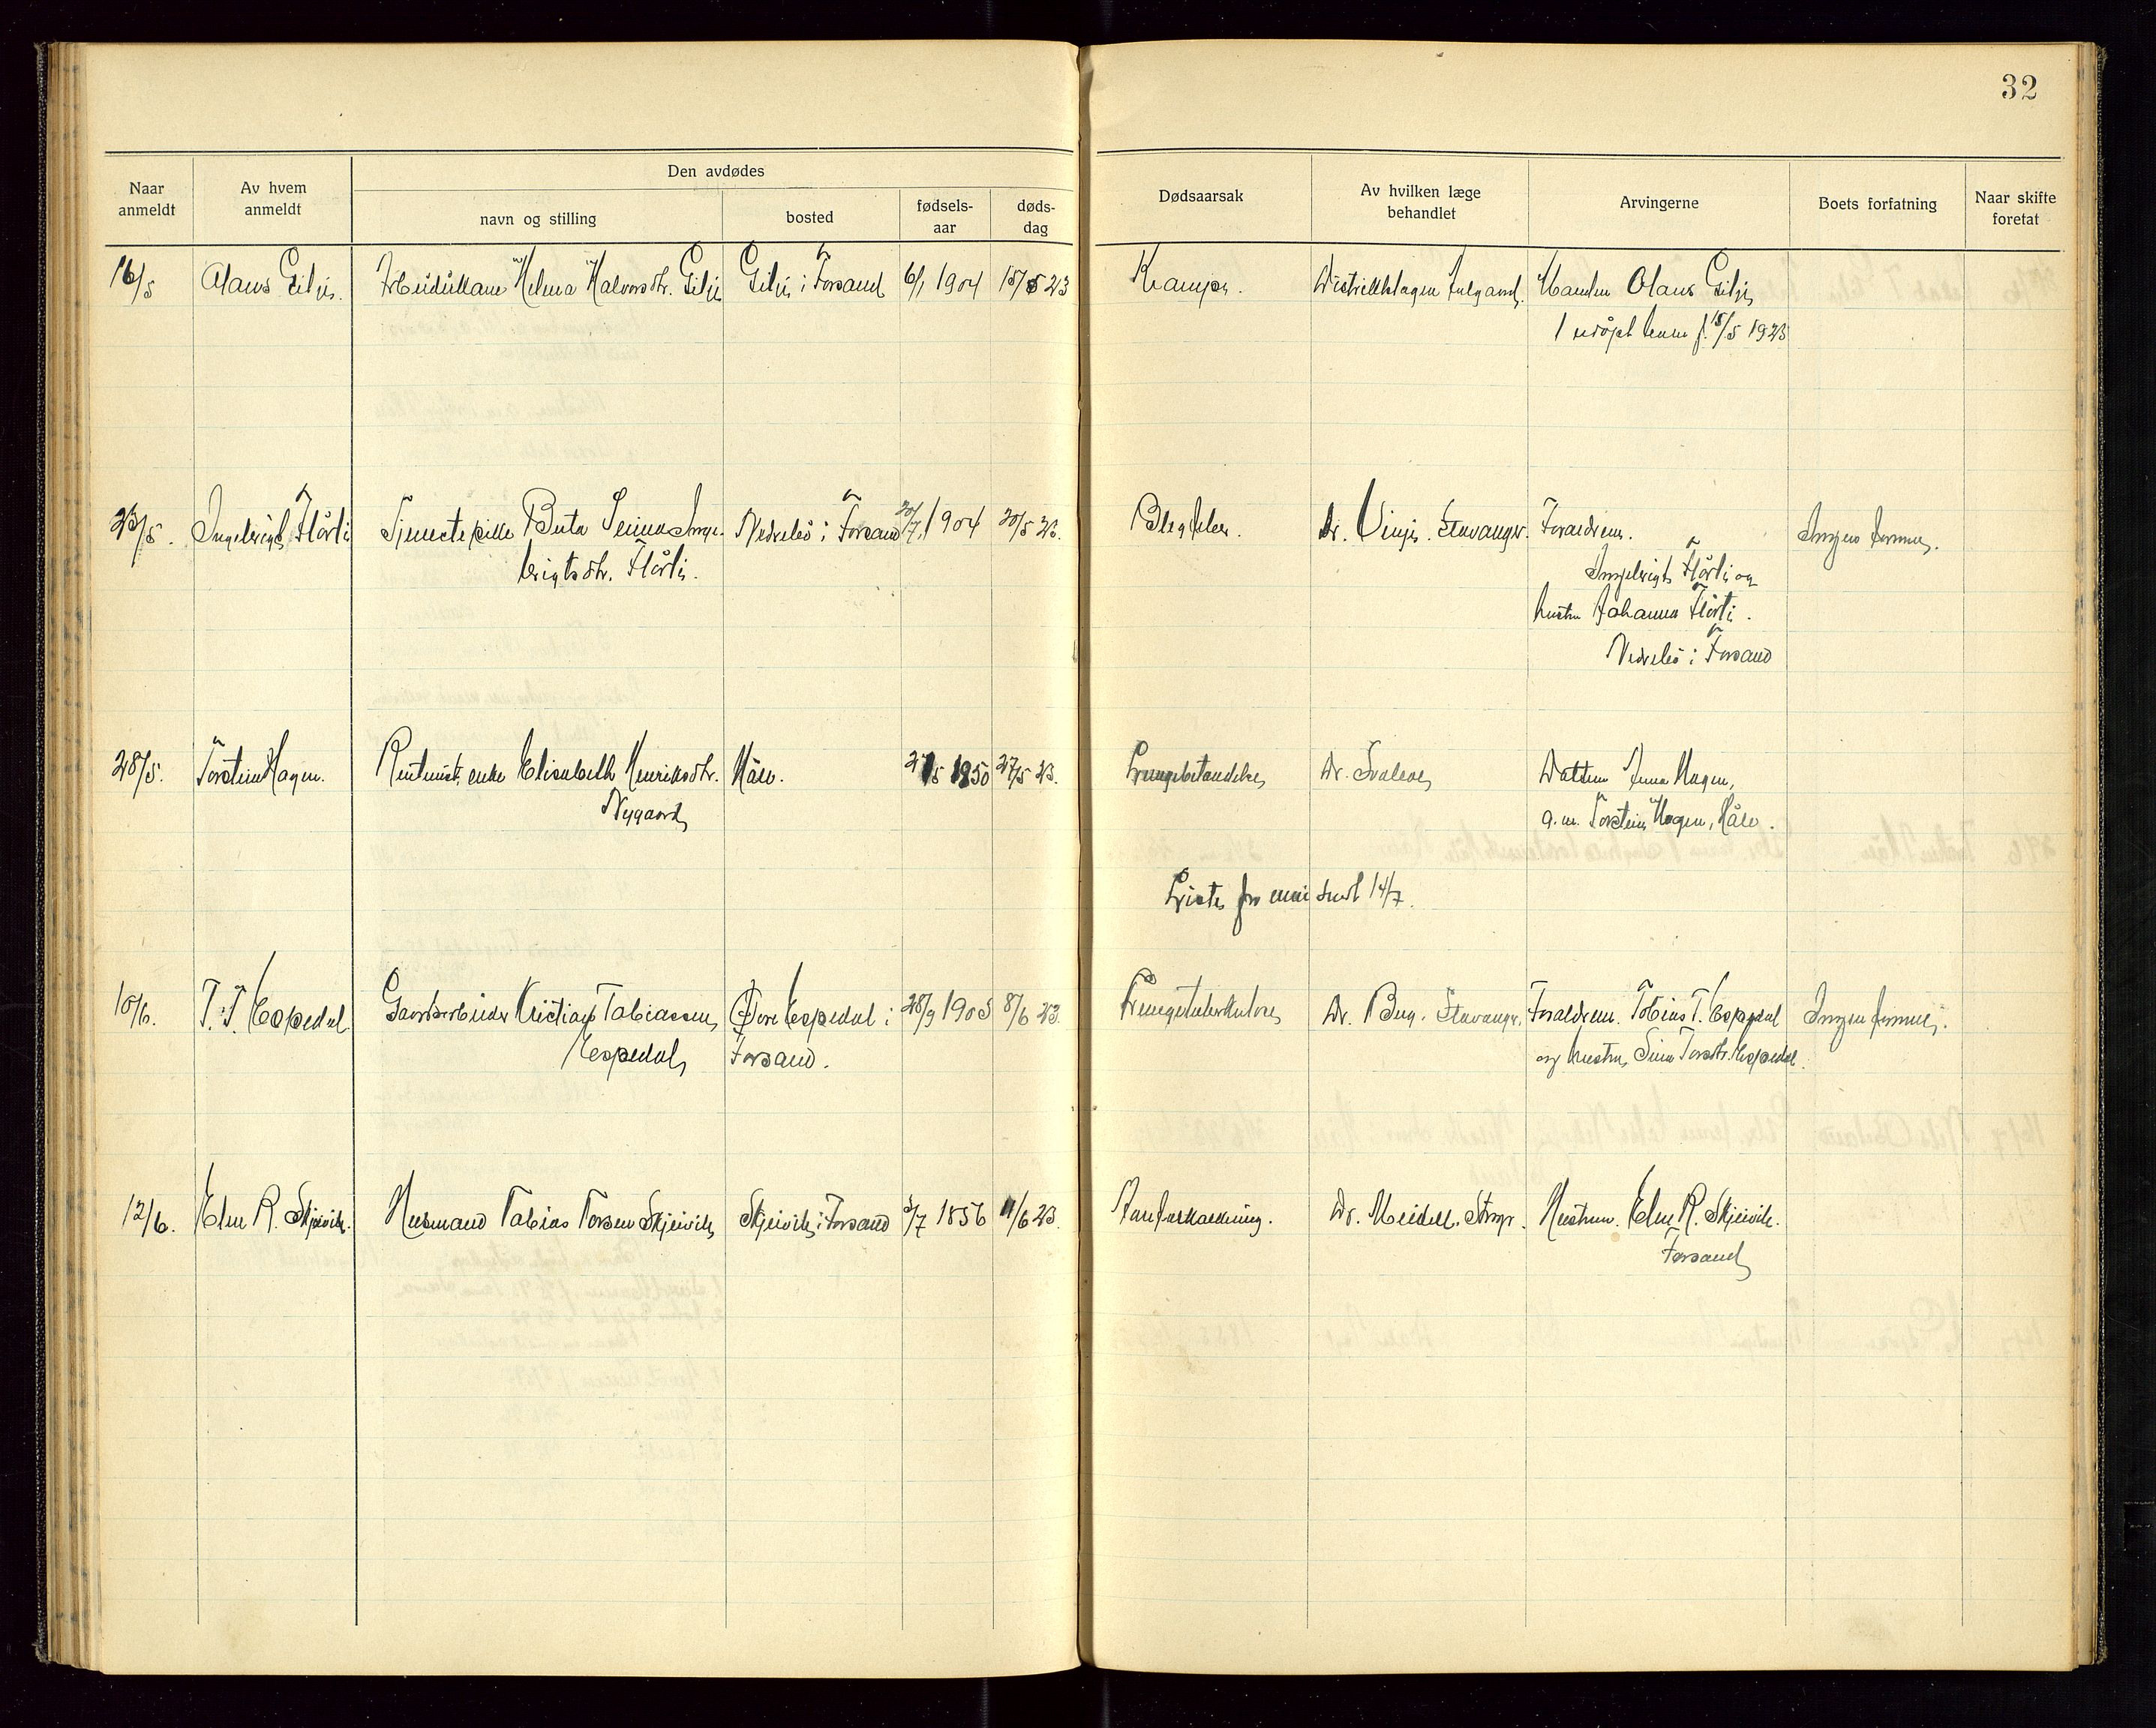 32
Naar anmeldt
Av hvem anmeldt
Den avdødes
navn og stilling
bosted
fødsels-aar
døds-dag
Dødsaarsak
Av hvilken læge behandlet
Arvingerne
Boets forfatning
Naar skifte foretat
16/5 Olaus Gilje. Helma Halvorsdtr. Gilje Gilje i Forsand 6/1 1904 15/5 23 Krampe. Manden Olaus Gilje
1 udøpt f. 15/5 1923
23/5. Ingebrigt Flørli Tjenestepike Berta Inge- Nedrebø i Forsand 20/7 1904 20/5 23. Dr. Stavanger. Forældrene. Ingen formue.
brigtsdtr. Flørli.
Ingebrigt Flørli og
hustru Johanna Flørli.
Nedrebø i Forsand
28/5. Torstein Hagen. enke Elisabeth Henriksdtr. Håle. 1850 27/5 23. Lungebetændelse Dr. Svalesen Datter Anna Hagen,
Nygaard
g.m. Torstein Hagen, Håle.
Liste fra sendt 14/7.
10/6. T. T. Espedal Gaardsarbeider Kristian Tobiassen Øvre Espedal i 28/9 1903 8/6 23. Lungetuberkulose Dr. Berg. Stavanger. Forældrene. Tobias T. Espedal Ingen formue.
Espedal Forsand. og hustru Sina Espedal.
12/6. Elen R. Skjeivik. Husmand Tobias Torsen Skjeivik Skjeivik i Forsand 3/7 1856 11/6 23. Aareforkalkning. Dr. Meidell. Strgr. Hustruen. Elen R. Skjeivik.
Forsand